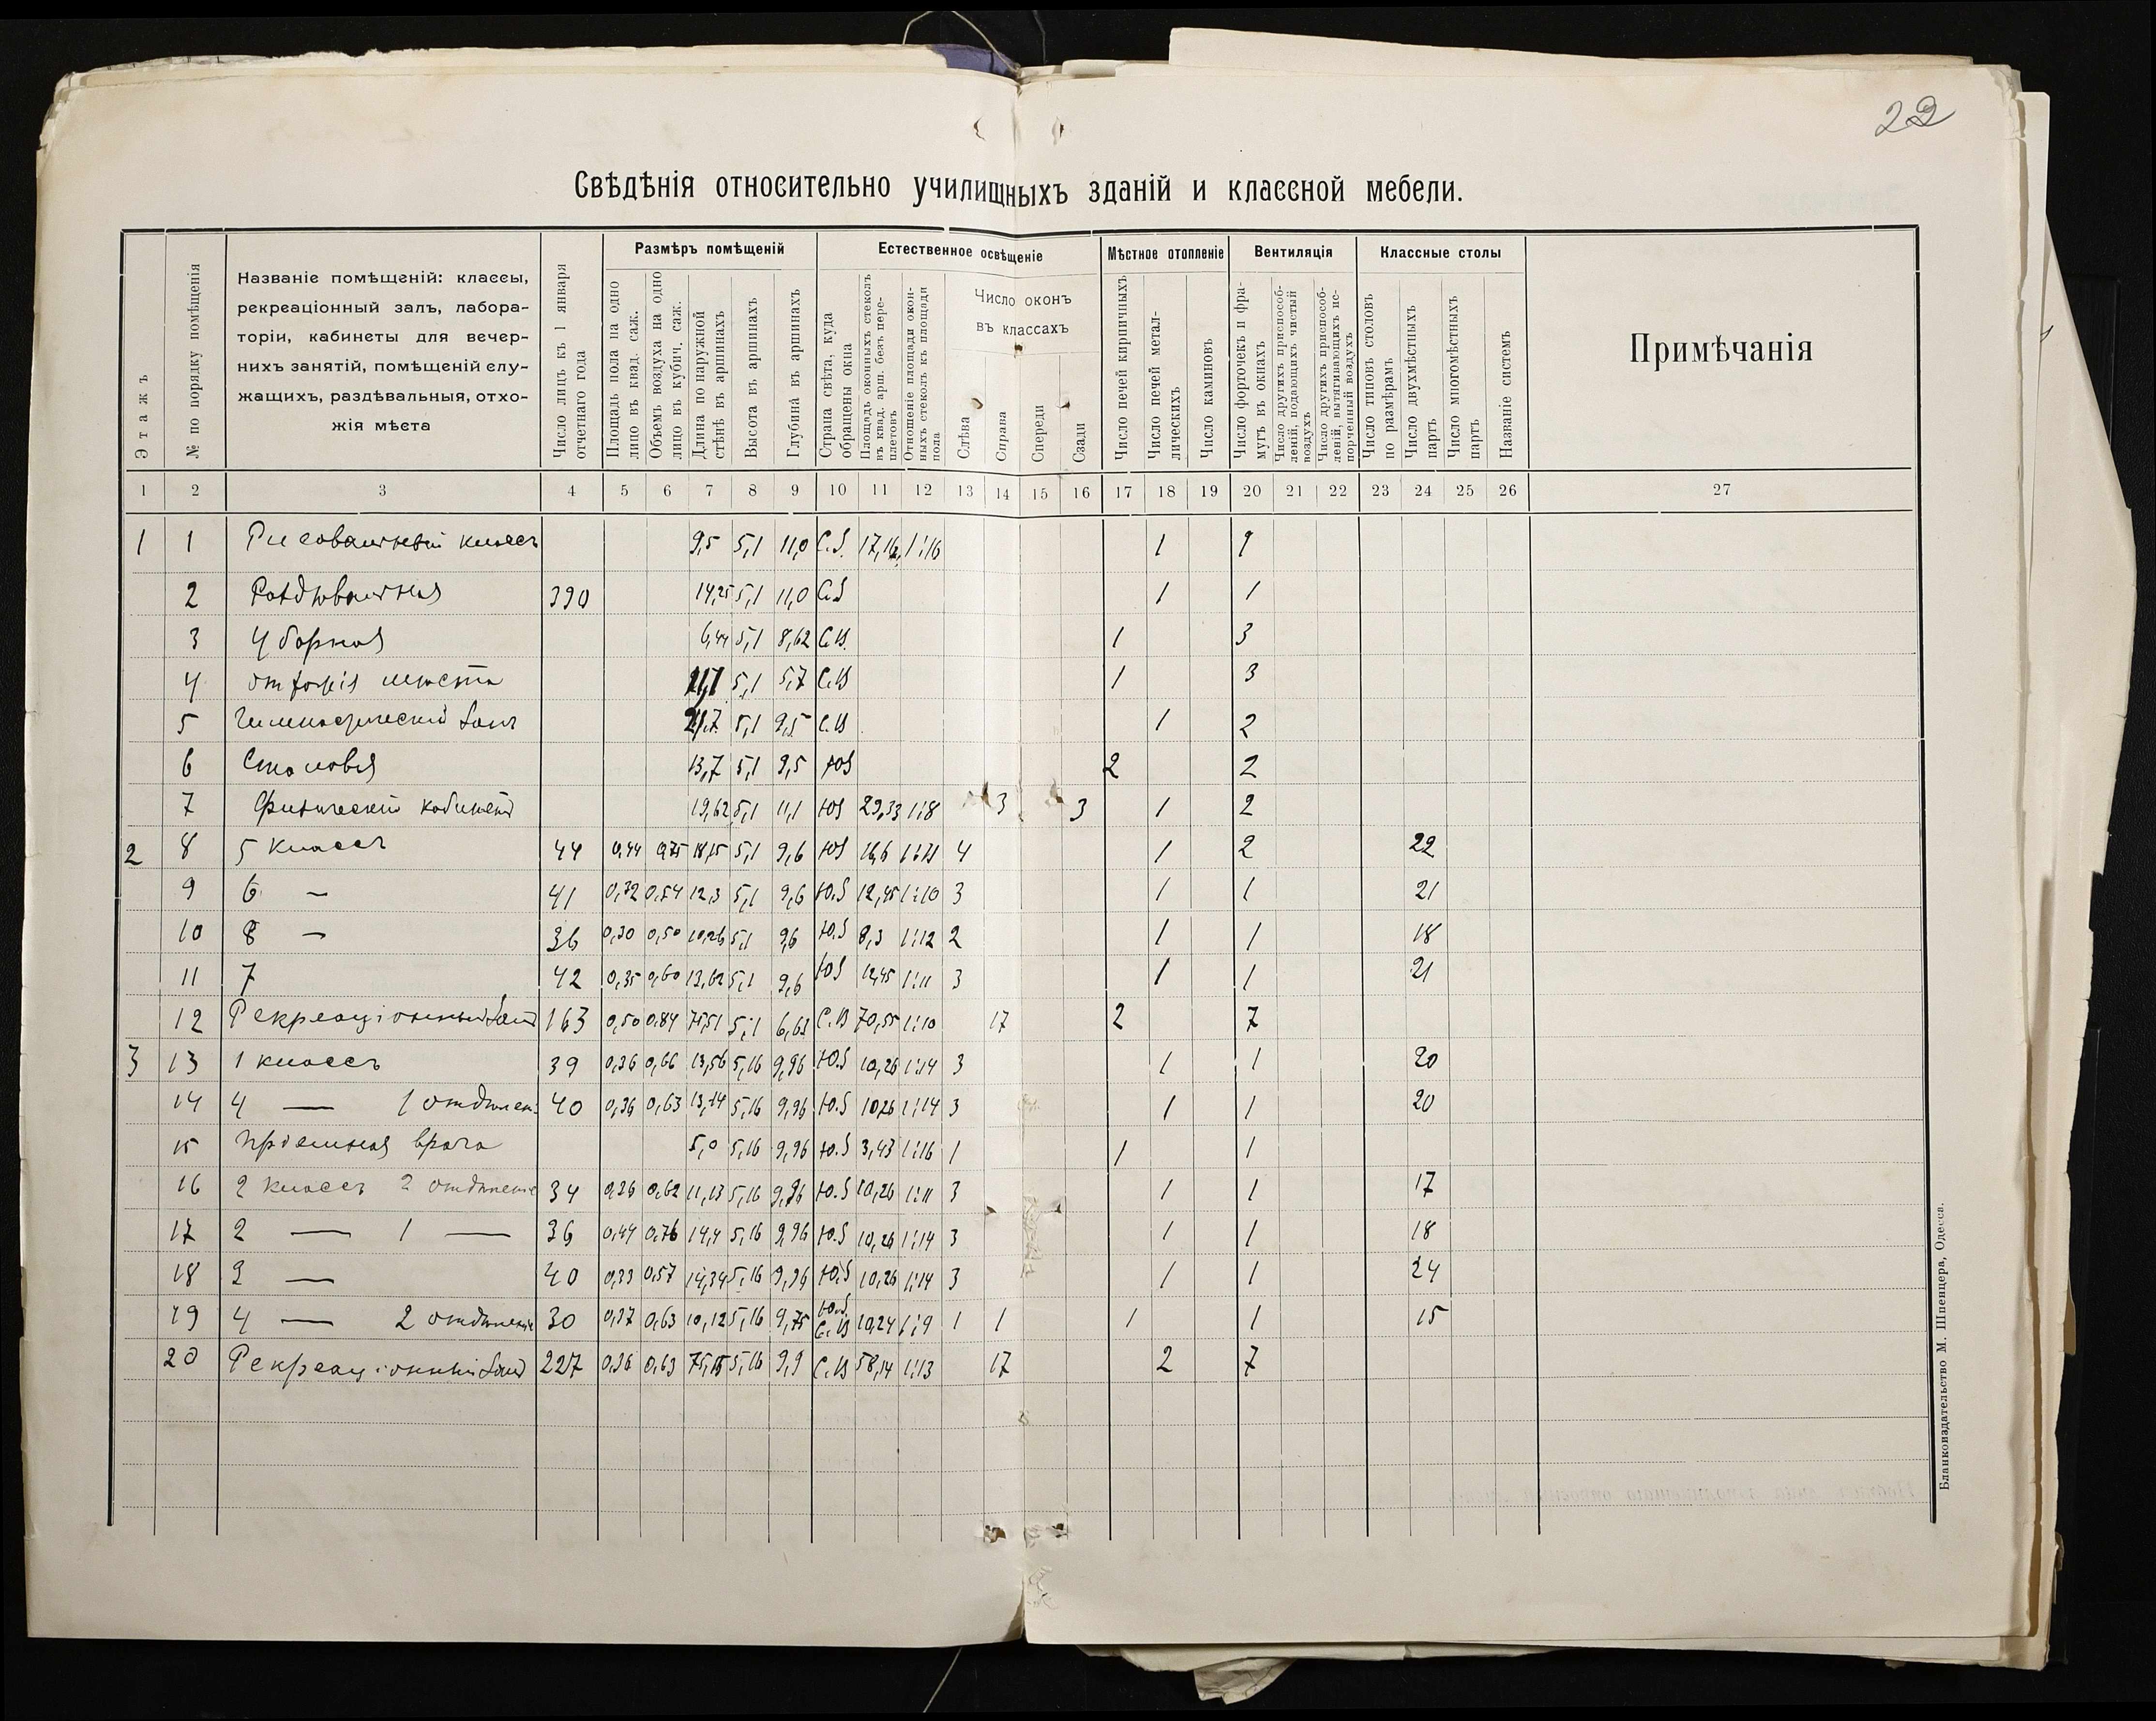 22
Свѣдѣнія относительно училищныхъ зданій и классной мебели.
Этажъ
№ по порядку помѣщенія
Названіе помѣщеній: классы,
рекреаціонный залъ, лабора-
торіи, кабинеты для вечер-
нихъ занятій, помѣщеній слу-
жащихъ, раздѣвальныя, отхо-
жія мѣста
Число лицъ къ 1 января
отчетнаго года
Размѣръ помѣщеній
Площадь пола на одно
лицо въ квад. саж.
Объемъ воздуха на одно
лицо въ кубич. саж.
Длина по наружной
стѣнѣ въ аршинахъ
Высота въ аршинахъ
Глубина въ аршинахъ
Естественное освѣщеніе
Страна свѣта, куда
обращены окна
Площадь оконныхъ стеколъ
въ квад. арш. безъ пере-
плетовъ
Отношеніе площади окон-
ныхъ стеколъ къ площади
пола
Число оконъ
въ классахъ
Слѣва
Справа
Спереди
Сзади
Мѣстное отопленіе
Число печей кирпичныхъ
Число печей метал-
лическихъ
Число каминовъ
Вентиляція
Число форточекъ и фра-
мугъ въ окнахъ
Число другихъ приспособ-
леній, подающихъ чистый
воздухъ
Число другихъ приспособ-
леній, вытягивающихъ ис-
порченный воздухъ
Классные столы
Число типовъ столовъ
по размѣрамъ
Число двухмѣстныхъ
партъ
Число многомѣстныхъ
партъ
Названіе системъ
Примѣчанія
1 2 3 4 5 6 7 8 9 10 11 12 13 14 15 16 17 18 19 20 21 22 23 24 25 26 27
1 1 Рисовальный классъ 9,5 5,1 11,0 С.З. 17,16 1:16 1
2 Раздѣвальная 390 14,25 5,1 11,0 С.З 1 1
3 Уборная 6,44 5,1 8,62 С.В. 1 3
4 отхожія мѣста 5,1 5,7 С.В 1 3
5 Гимнастическій залъ 21,7 5,1 9,5 С.В 1 2
6 Столовая 13,7 5,1 9,5 ЮЗ 2 2
7 Физическій кабинетъ 19,62 5,1 11,1 ЮЗ 29,33 1:8 3 3 1 2
2 8 5 классъ 44 0,44 0,75 18,15 5,1 9,6 ЮЗ 16,6 4 1 2 22
9 6 — 41 0,32 0,54 12,3 5,1 9,6 Ю.З 12,45 1:10 3 1 1 21
10 8 — 36 0,30 0,50 10,26 5,1 9,6 Ю.З 8,3 1:12 2 1 1 18
11 7 42 0,35 0,60 13,62 5,1 9,6 ЮЗ 12,45 1:11 3 1 1 21
12 Рекреаціонный залъ 163 0,50 0,84 75,51 5,1 6,63 С.В 70,55 1:10 17 2 7
3 13 1 классъ 39 0,36 0,66 13,56 5,16 9,96 Ю.З 10,26 1:14 3 1 1 20
14 4 — 1 отдѣлен. 40 0,36 0,63 13,14 5,16 9,96 Ю.З 10,26 1:14 3 1 1 20
15 Пріемная врача 5,0 5,16 9,96 Ю.З 3,43 1:16 1 1 1
16 2 классъ 2 отдѣленіе 34 0,36 0,62 11,13 5,16 9,96 Ю.З 10,26 1:11 3 1 1 17
17 2 — 1 — 36 0,44 0,76 14,4 5,16 9,96 Ю.З 10,26 1:14 3 1 1 18
18 3 — 40 0,33 0,57 14,34 5,16 9,96 Ю.З 10,26 1:14 3 1 1 24
19 4 — 2 отдѣленіе 30 0,37 0,63 10,12 5,16 9,75 Ю.З. С.В 10,24 1:9 1 1 1 1 15
20 Рекреаціонный залъ 227 0,36 0,63 75,15 5,16 9,9 С.В 58,14 1:13 17 2 7
Бланкоиздательство М. Шпенцера, Одесса.